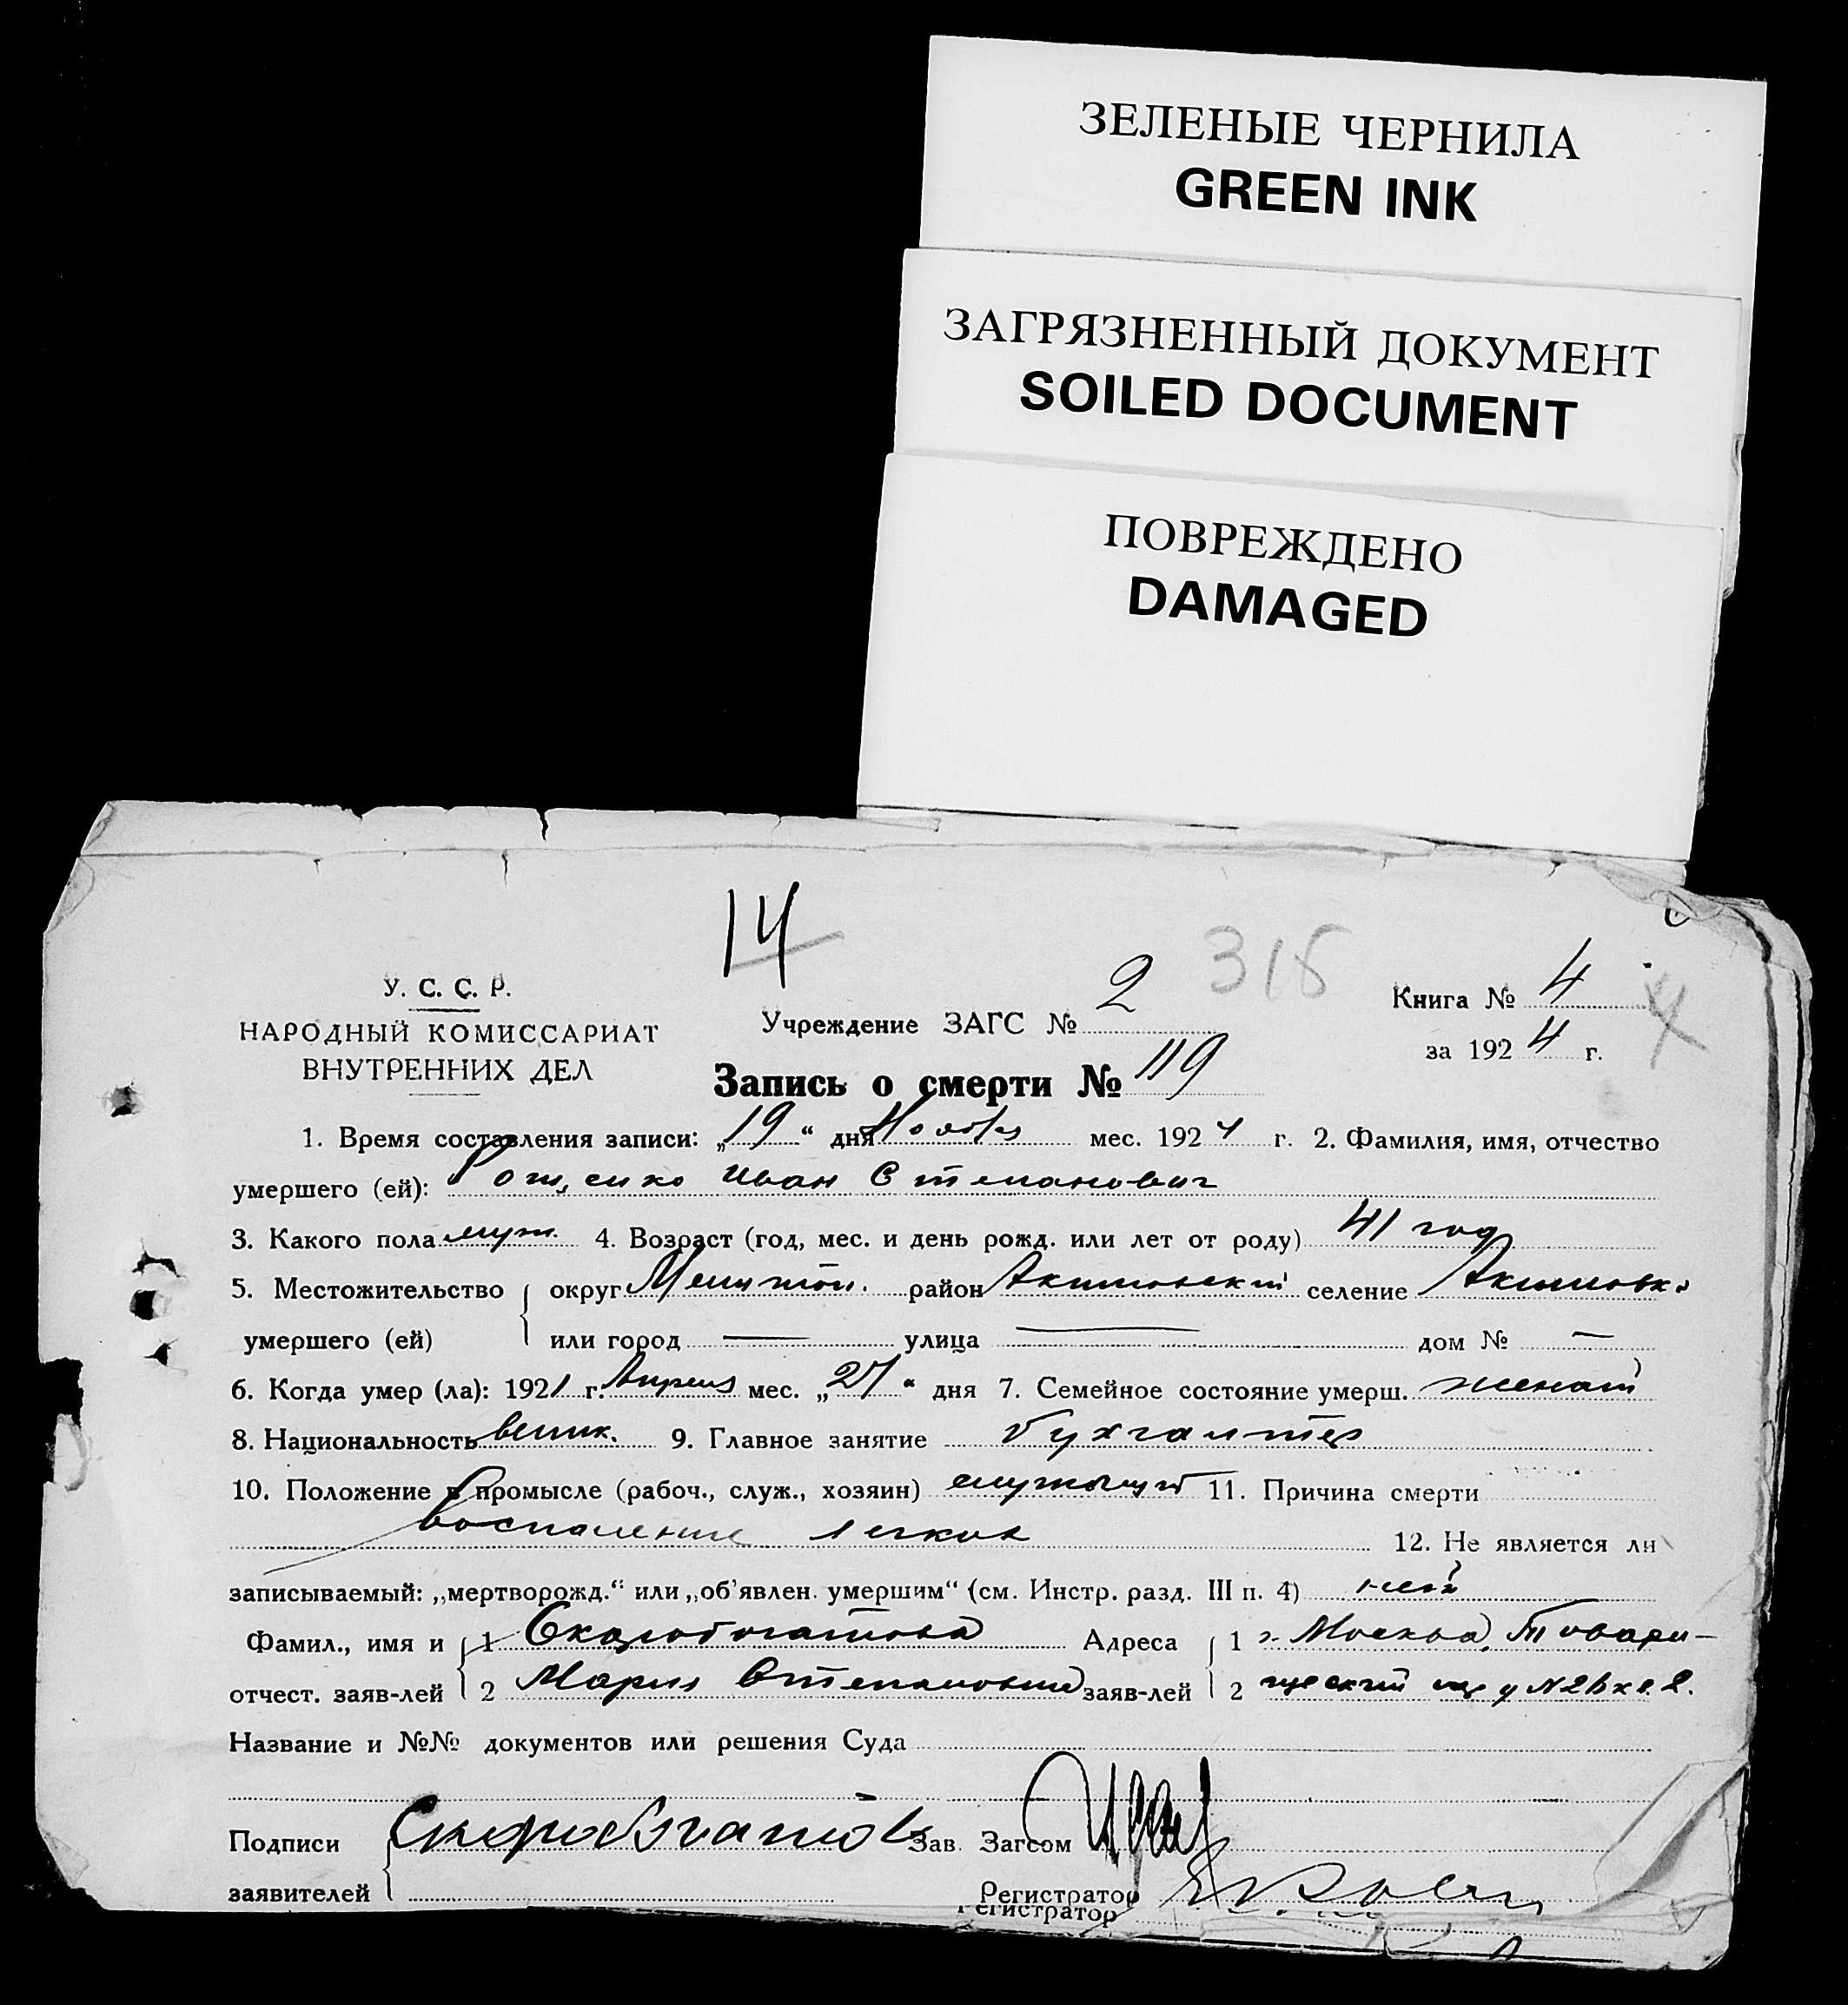 ЗЕЛЕНЫЕ ЧЕРНИЛА
GREEN INK
ЗАГРЯЗНЕННЫЙ ДОКУМЕНТ
SOILED DOCUMENT
ПОВРЕЖДЕНО
DAMAGED
14
315
У. С. С. Р.
НАРОДНЫЙ КОМИССАРИАТ
ВНУТРЕННИХ ДЕЛ
Учреждение ЗАГС № 2
Книга № 4
за 1924 г.
Запись о смерти № 119
1. Время составления записи: „19“ дня Ноября мес. 1924 г. 2. Фамилия, имя, отчество
умершего (ей): Рощенко Иван Степанович
3. Какого пола муж. 4. Возраст (год, мес. и день рожд. или лет от роду) 41 год
5. Местожительство округ Мелитоп. район Акимовский селение Акимовка
умершего (ей) или город — улица — дом № —
6. Когда умер (ла): 1921 г. Апреля мес. „27“ дня 7. Семейное состояние умерш. женат
8. Национальность 9. Главное занятие бухгалтер
10. Положение в промысле (рабоч., служ., хозяин) служащий 11. Причина смерти
воспаление легких 12. Не является ли
записываемый: „мертворожд.“ или „об'явлен. умершим“ (см. Инстр. разд. III п. 4) нет
Фамил., имя и 1 Скоробогатова Адреса 1 г. Москва, Товари-
отчест. заяв-лей 2 Мария Степановна заяв-лей 2 щеский
Название и №№ документов или решения Суда
Подписи Скоробогатова Зав. Загсом
заявителей Регистратор
Регистратор